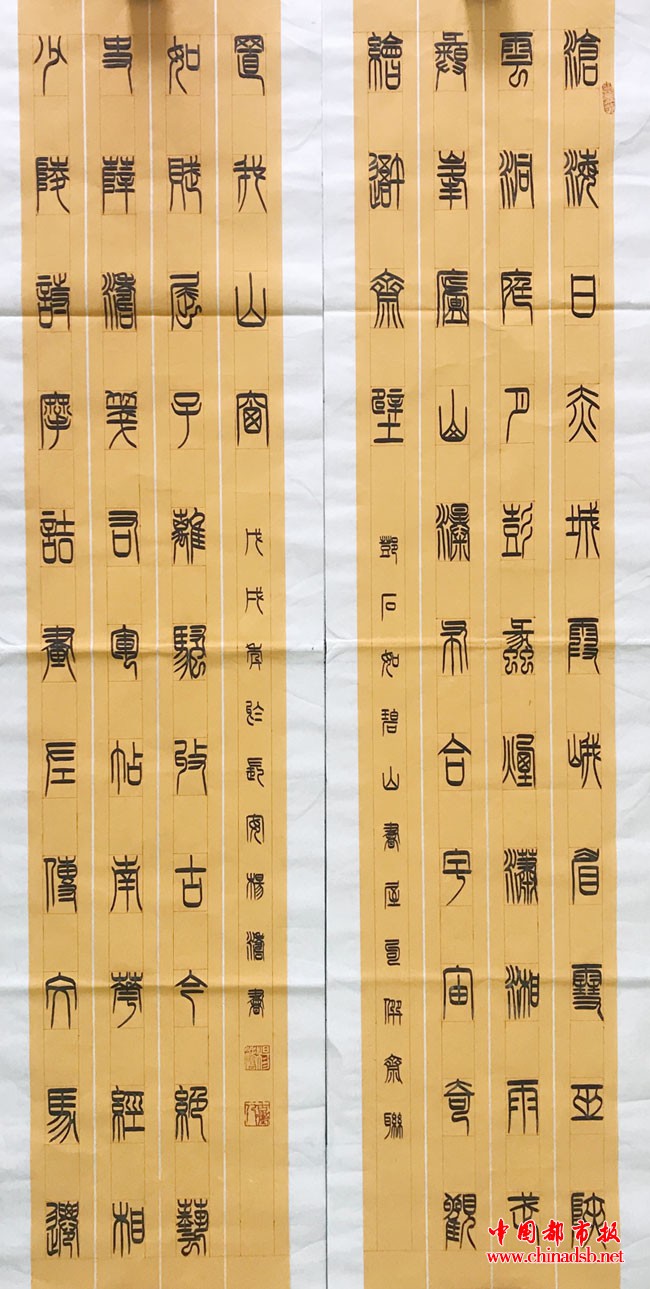 滄海日赤城霞峨眉雪巫峽
雲洞庭月彭蠡煙瀟湘雨武
彝峯廬山瀑布合宇宙奇觀
繪吾齋壁
鄧石如碧山書屋齋聯
少陵詩摩詰畫左傳文馬遷
史薛濤箋右軍帖南華經相
如賦屈子離騷收古今絕藝
置我山窗
戊戌年於長安楊濤書
中国都市报
www.chinadsb.net